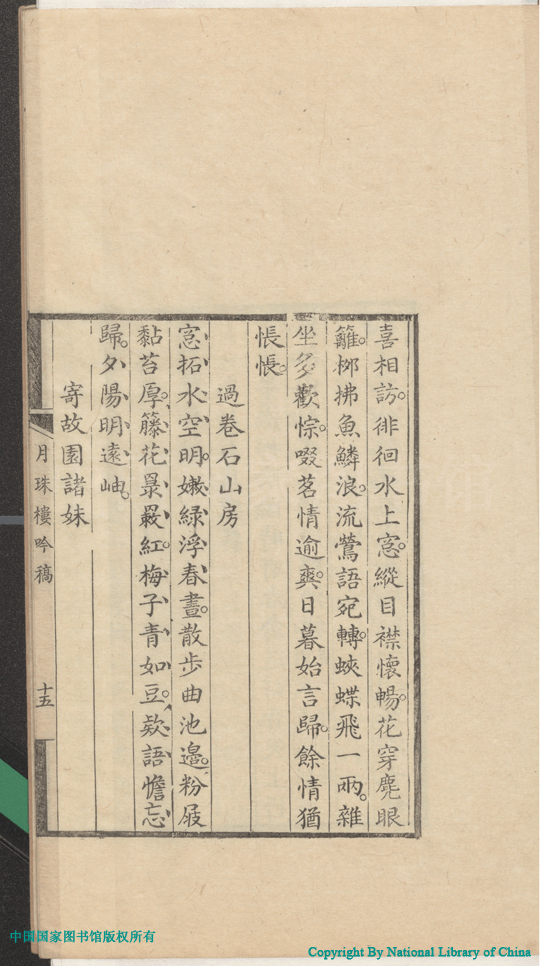 喜相訪。徘徊水上窓。縱目襟懷暢。花穿麂眼
籬。栁拂魚鱗浪。流鶯語宛轉。蛺蝶飛一兩。雜
坐多歡悰。啜茗情逾爽。日暮始言歸。餘情猶
悵悵。
過卷石山房
窓拓水空明。嫩綠浮春晝。散步曲池邉。粉屐
黏苔厚。籐花㝡嚴紅。梅子青如豆。欵語憺忘
歸。夕陽明遠岫。
寄故園諸妹
月珠樓吟稿
十五
中国国家图书馆版权所有
Copyright By National Library of China